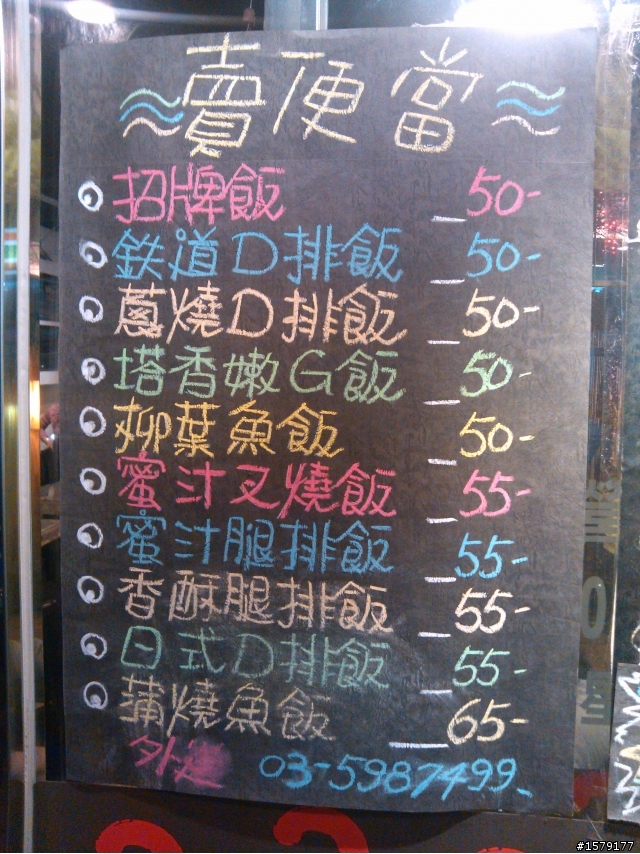 賣便當
招牌飯 50-
鉄道D排飯 50-
蔥燒D排飯 50-
塔香嫩G飯 50-
柳葉魚飯 50-
蜜汁叉燒飯 55-
蜜汁腿排飯 55-
香酥腿排飯 55-
日式D排飯 55-
蒲燒魚飯 65-
外送 03-5987499
#1579177